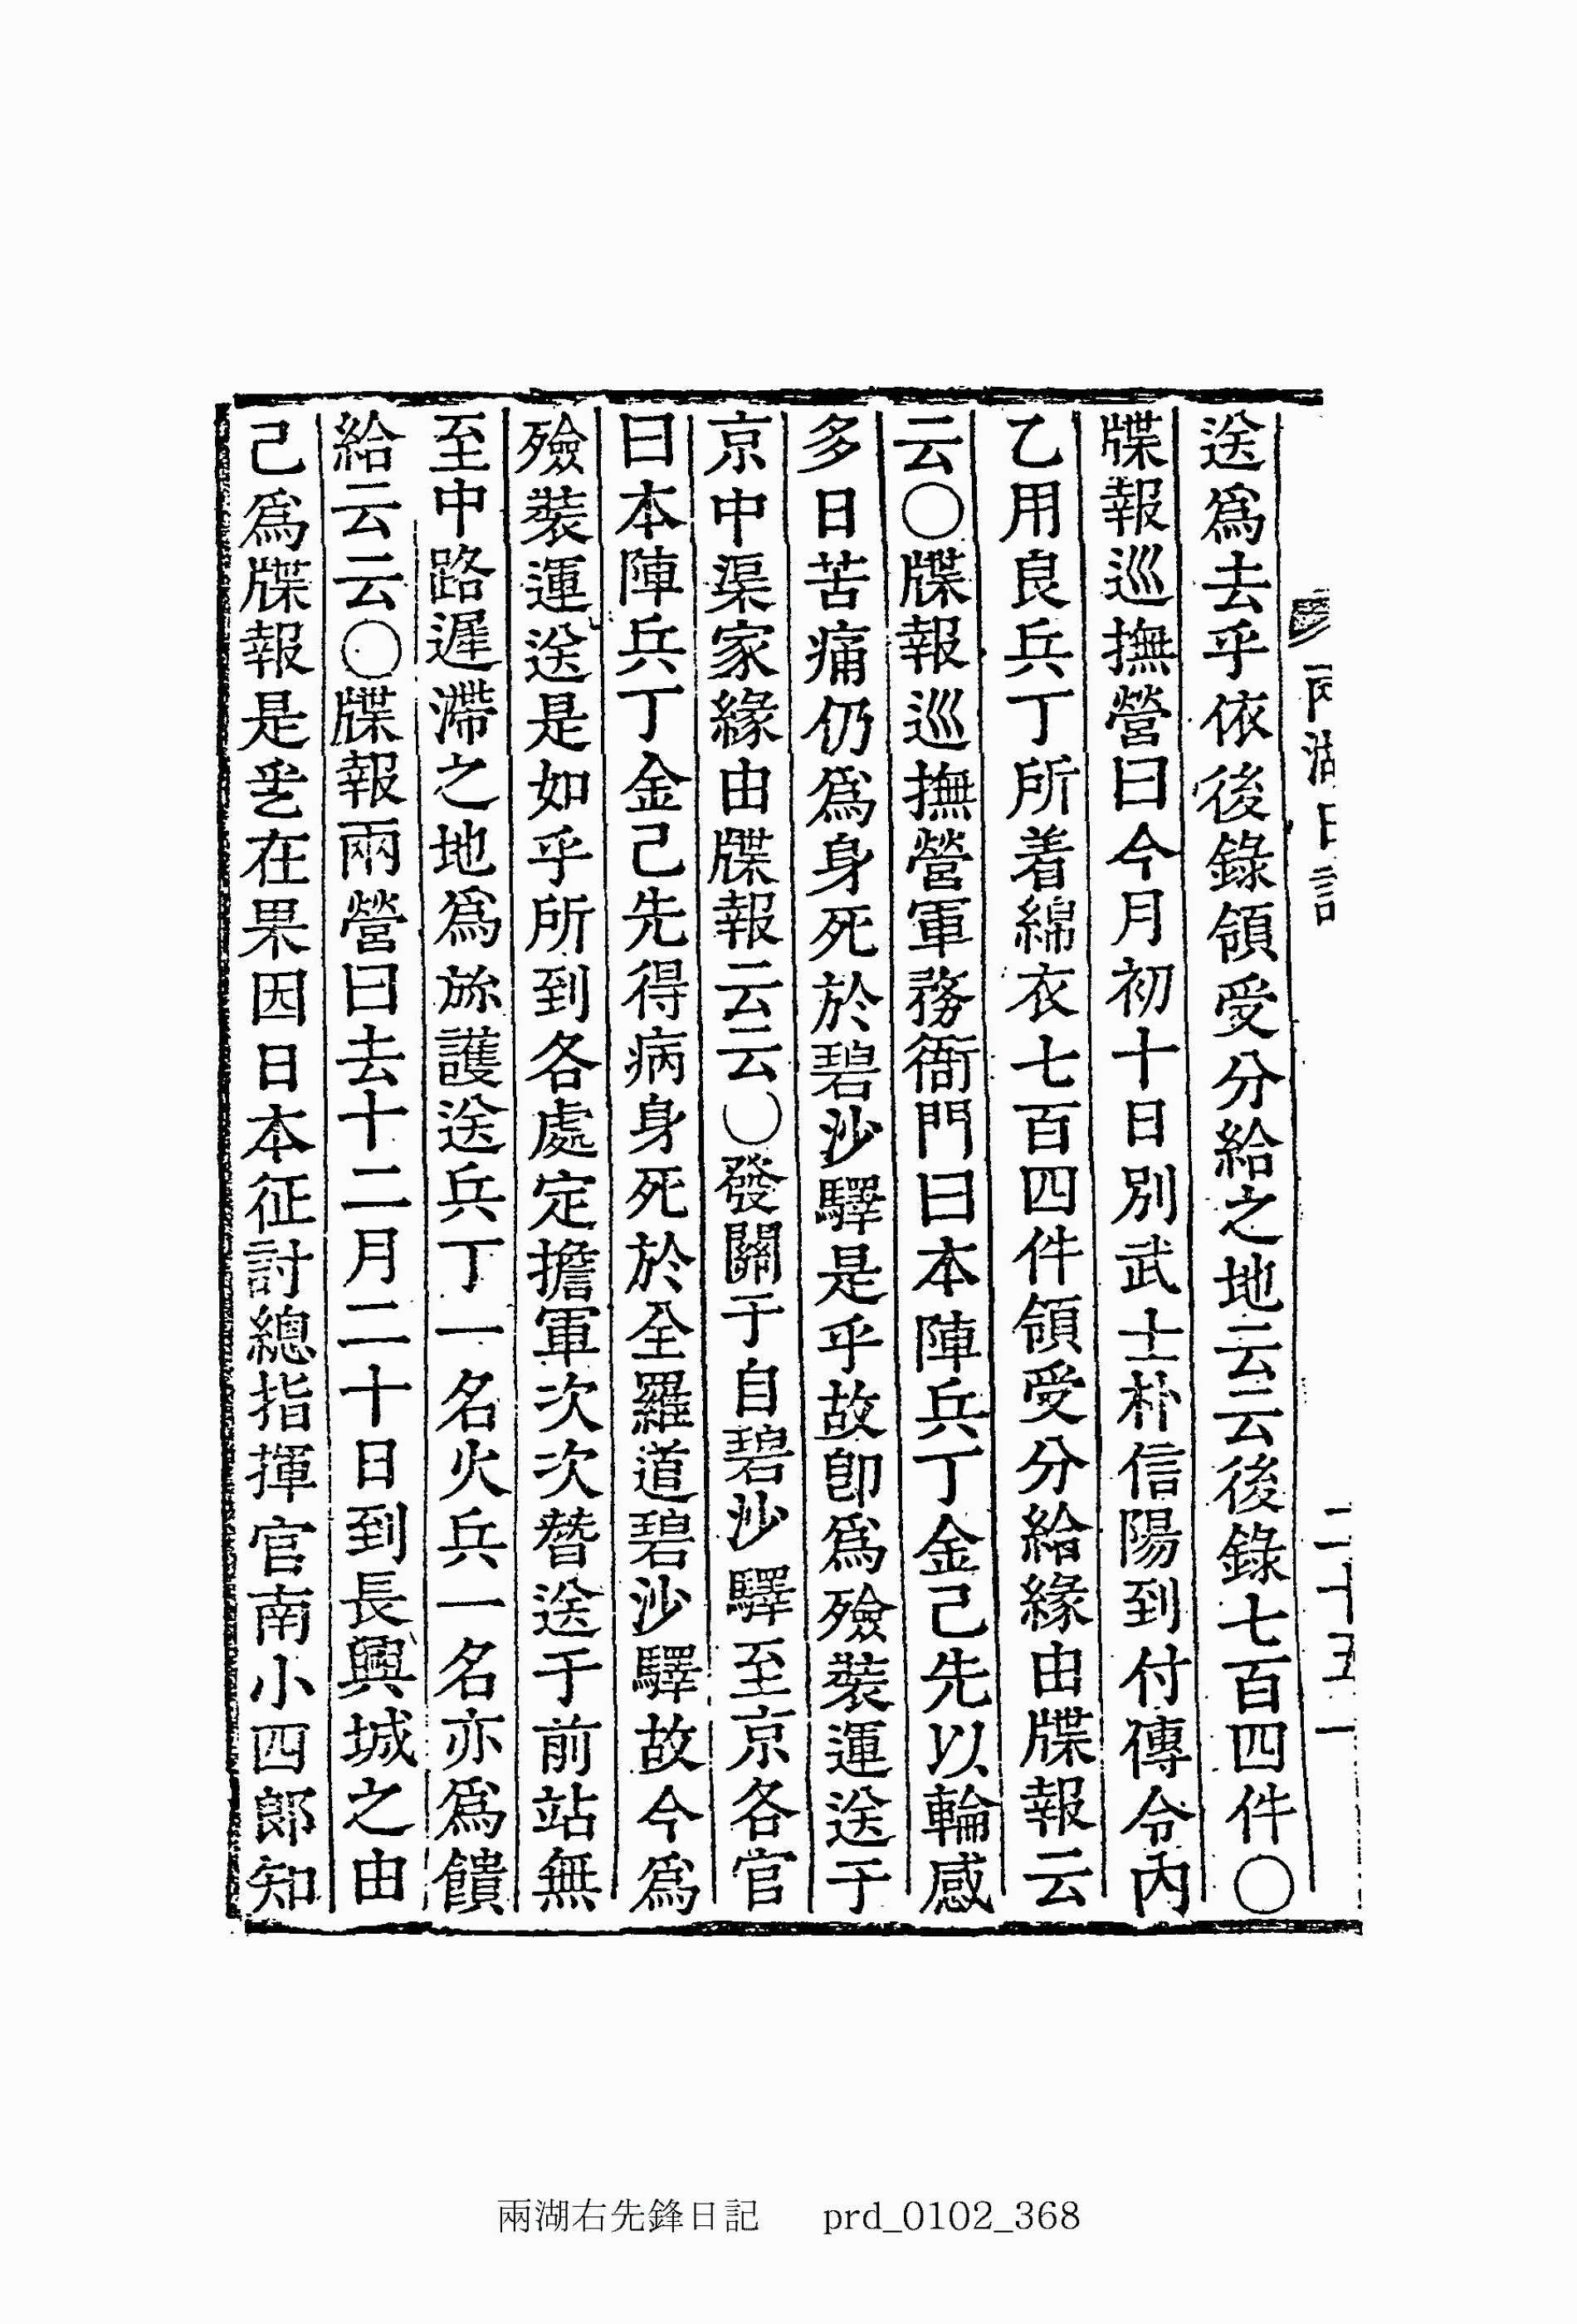 兩湖日記
二十五
送爲去乎依後錄領受分給之地云云後錄七百四件〇
牒報巡撫營曰今月初十日別武士朴信陽到付傳令內
乙用良兵丁所着綿衣七百四件領受分給緣由牒報云
云〇牒報巡撫營軍務衙門曰本陣兵丁金己先以輪感
多日苦痛仍爲身死於碧沙驛是乎故卽爲殮裝運送于
京中渠家緣由牒報云云〇發關于自碧沙驛至京各官
曰本陣兵丁金己先得病身死於全羅道碧沙驛故今爲
殮裝運送是如乎所到各處定擔軍次次替送于前站無
至中路遲滯之地爲旀護送兵丁一名火兵一名亦爲饋
給云云〇牒報兩營曰去十二月二十日到長興城之由
己爲牒報是乯在果因日本征討總指揮官南小四郎知
兩湖右先鋒日記 prd_0102_368